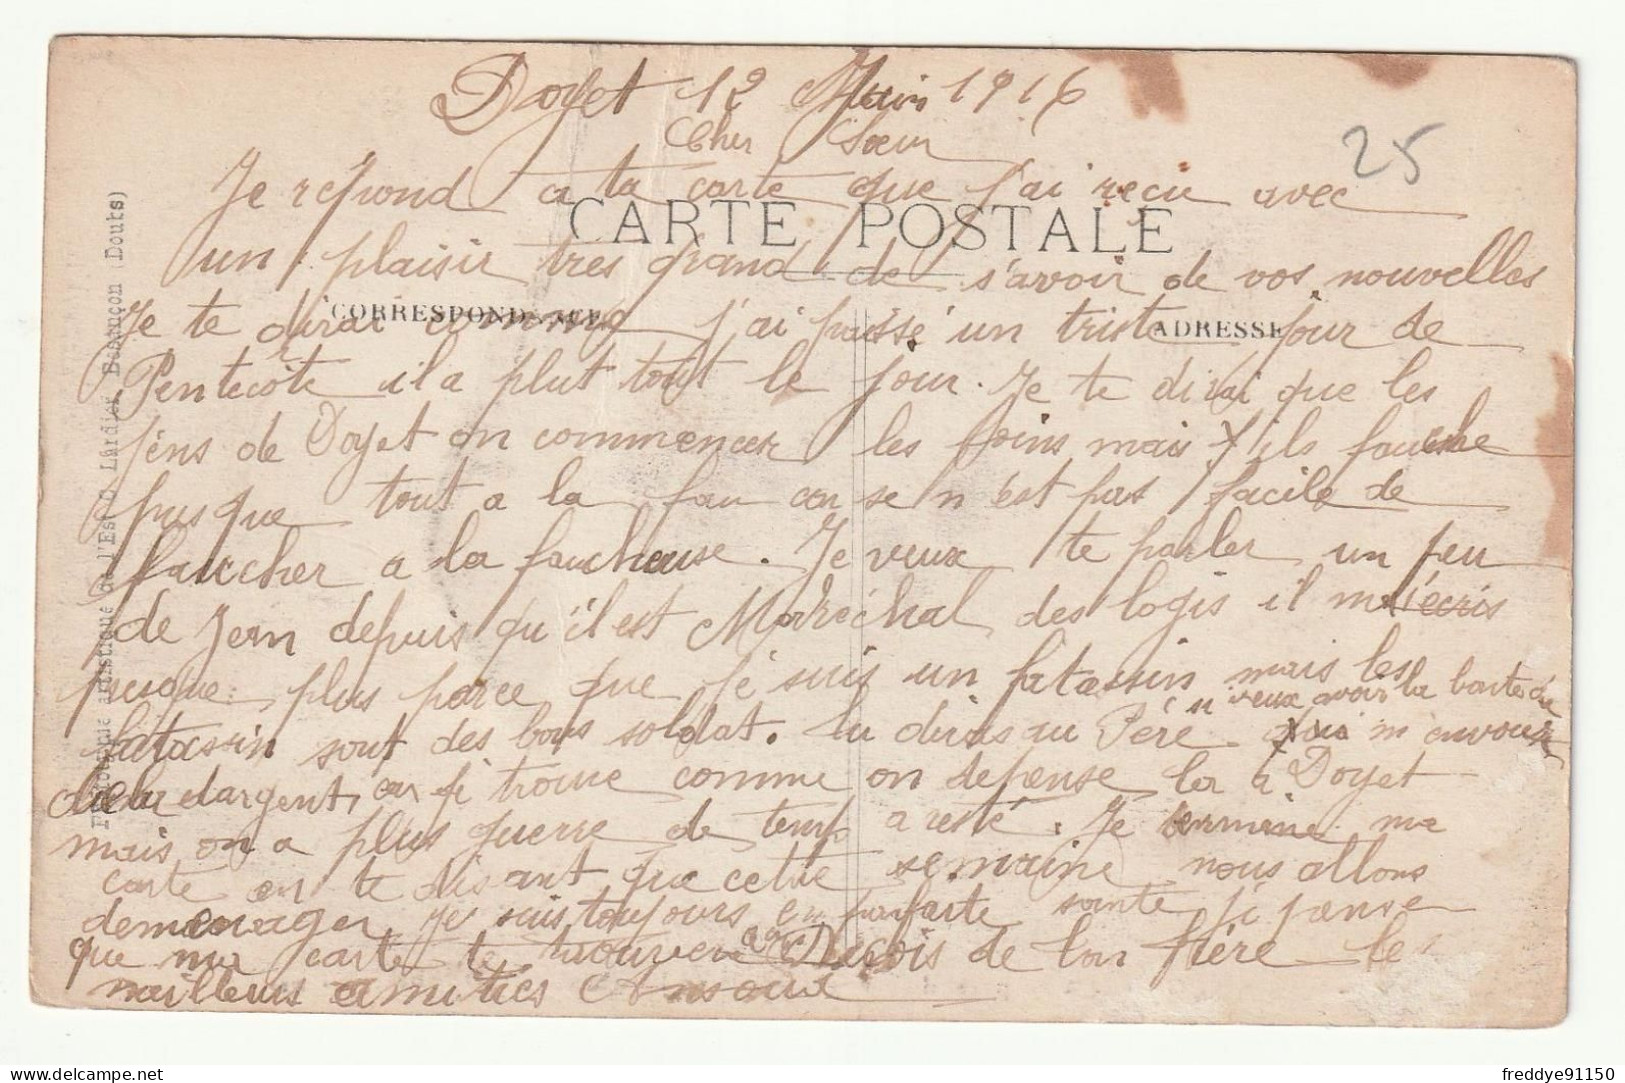 Doyet 12 Juin 1916
25
Cher Sœur
Je répond a ta carte que j'ai reçu avec
CARTE POSTALE
un plaisir tres grand de s'avoir de vos nouvelles
CORRESPONDANCE
ADRESSE
Je te dirai comme j'ai passé un triste jour de
Pentecôte il a plut tout le jour. Je te dirai que les
jens de Doyet on commencer les foins mais ils fauche
presque tout a la fau car se n'est pas facile de
faucher a la faucheuse. Je veux te parler un peu
de Jean depuis qu'il est Maréchal des logis il m'écris
presque plus parce que je suis un fatassin mais les
si veux avoir la
fatassin sont des bons soldat. Tu diras au Père m'envoie
dargent, car je trouve comme on depense la a Doyet
mais on a plus guerre de temp a resté. Je termine ma
carte en te disant que cette semaine nous allons
demenager Je suis toujours en parfaite santé je panse
que ma carte te trouvera Reçois de ton frère le
meilleurs amitiés
Phototypie artistique de l'Est C. Lardier, Besançon (Doubs)
delcampe.net
freddye91150